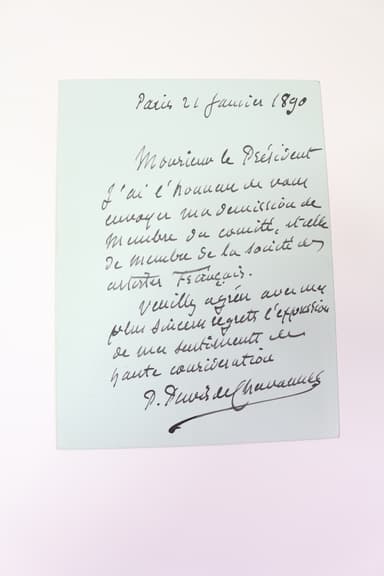 Paris 21 Janvier 1890
Monsieur le Président
J'ai l'honneur de vous
envoyer ma démission de
Membre du comité, et celle
de membre de la société des
artistes Français.
Veuillez agréer avec mes
plus sincères regrets l'expression
de mes sentiments de
haute considération
P. Puvis de Chavannes